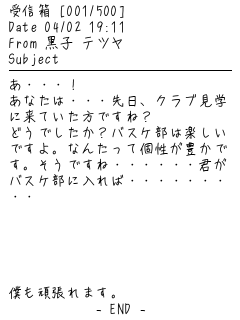 受信箱 [001/500]
Date 04/02 19:11
From 黒子 テツヤ
Subject
あ・・・！
あなたは・・・先日、クラブ見学
に来ていた方ですね？
どうでしたか？バスケ部は楽しい
ですよ。なんたって個性が豊かで
す。そうですね・・・・・・君が
バスケ部に入れば・・・・・・・
・・
僕も頑張れます。
- END -